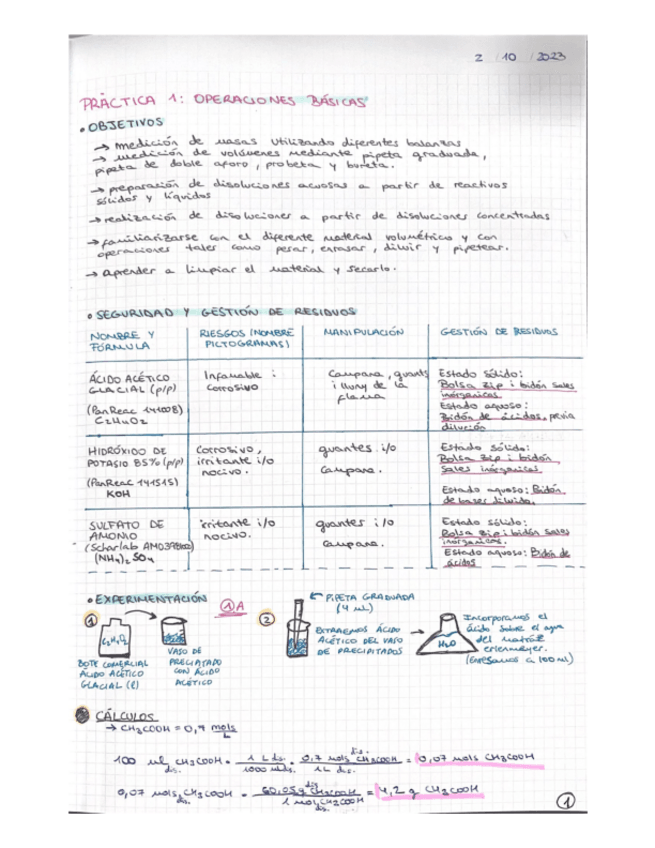 2 / 10 / 2023
PRÀCTICA 1: OPERACIONES BÁSICAS
• OBJETIVOS
→ medición de masas utilizando diferentes balanzas
→ medición de volúmenes mediante pipeta graduada,
pipeta de doble aforo, probeta y bureta.
→ preparación de disoluciones acuosas a partir de reactivos
sólidos y líquidos
→ realización de disoluciones a partir de disoluciones concentradas
→ familiarizarse con el diferente material volumétrico y con
operaciones tales como pesar, enrasar, diluir y pipetear.
→ aprender a limpiar el material y secarlo.
• SEGURIDAD Y GESTIÓN DE RESIDUOS
NOMBRE Y FÓRMULA
RIESGOS (NOMBRE PICTOGRAMAS)
MANIPULACIÓN
GESTIÓN DE RESIDUOS
ÁCIDO ACÉTICO
GLACIAL (p/p)
(PanReac 141008)
C2H4O2
Inflamable i
corrosivo
Campana, guants
i lluny de la
flama
Estado sólido:
Bolsa zip i bidón sales
inorgánicas
Estado aquoso:
Bidón de ácidos, previa
dilución
HIDRÓXIDO DE
POTASIO 85% (p/p)
(PanReac 141515)
KOH
Corrosivo,
irritante i/o
nocivo.
guantes i/o
campana.
Estado sólido:
Bolsa zip i bidón
sales inorgánicas.
Estado aquoso: Bidón
de bases diluido.
SULFATO DE
AMONIO
(Scharlab
(NH4)2 SO4
irritante i/o
nocivo.
guantes i/o
campana.
Estado sólido:
Bolsa zip i bidón sales
inorgánicas.
Estado aquoso: Bidón de
ácidos
• EXPERIMENTACIÓN
1A
1
C2H4O2
BOTE COMERCIAL
ÁCIDO ACÉTICO
GLACIAL (l)
VASO DE
PRECIPITADO
CON ÁCIDO
ACÉTICO
2
PIPETA GRADUADA
(4 mL)
EXTRAEMOS ÁCIDO
ACÉTICO DEL VASO
DE PRECIPITADOS
H2O
Incorporamos el
ácido sobre el agua
del matraz
erlenmeyer.
(enrasamos a 100 ml)
CÁLCULOS
→ CH3COOH = 0,7 mols/L
100 mL dis. CH3COOH · 1 L dis. / 1000 ml dis. · 0,7 mols CH3COOH / 1 L dis. = 0,07 mols CH3COOH
0,07 mols dis. CH3COOH · 60,05g dis CH3COOH / 1 mol CH3COOH dis. = 4,2 g CH3COOH
1